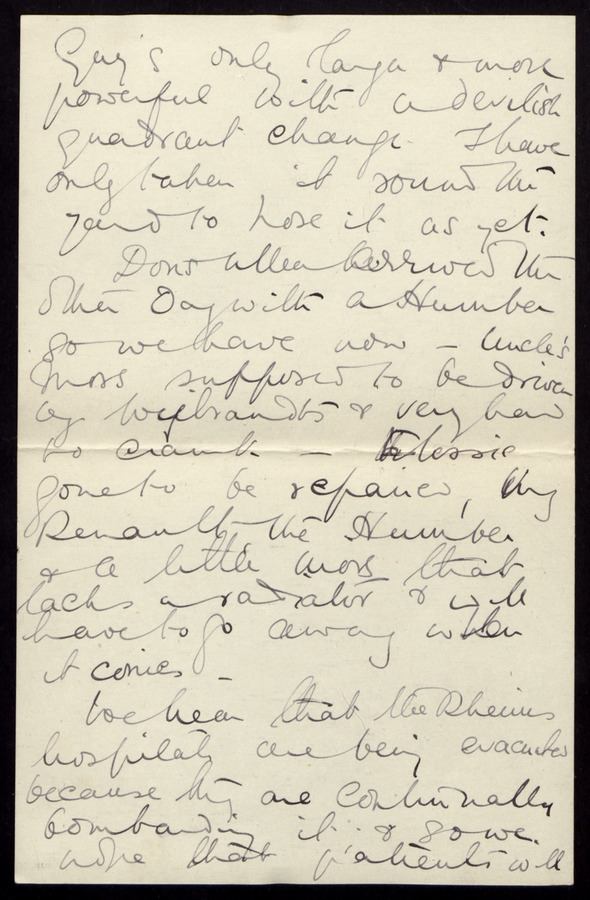 Guy's only larger & more
powerful with a devilish
quadrant change. I have
only taken it round the
yard to hose it as yet.
Doris Allen arrived the
other day with a Humber
so we have now – Uncle's
Mors supposed to be driven
by & very hard
to crank –
gone to be repaired, my
Renault, the Humber
& a little Mors that
lacks a radiator & will
have to go away when
it comes –
We hear that the Rheims
hospitals are being evacuated
because they are continually
bombarding it & so we
hope that patients will